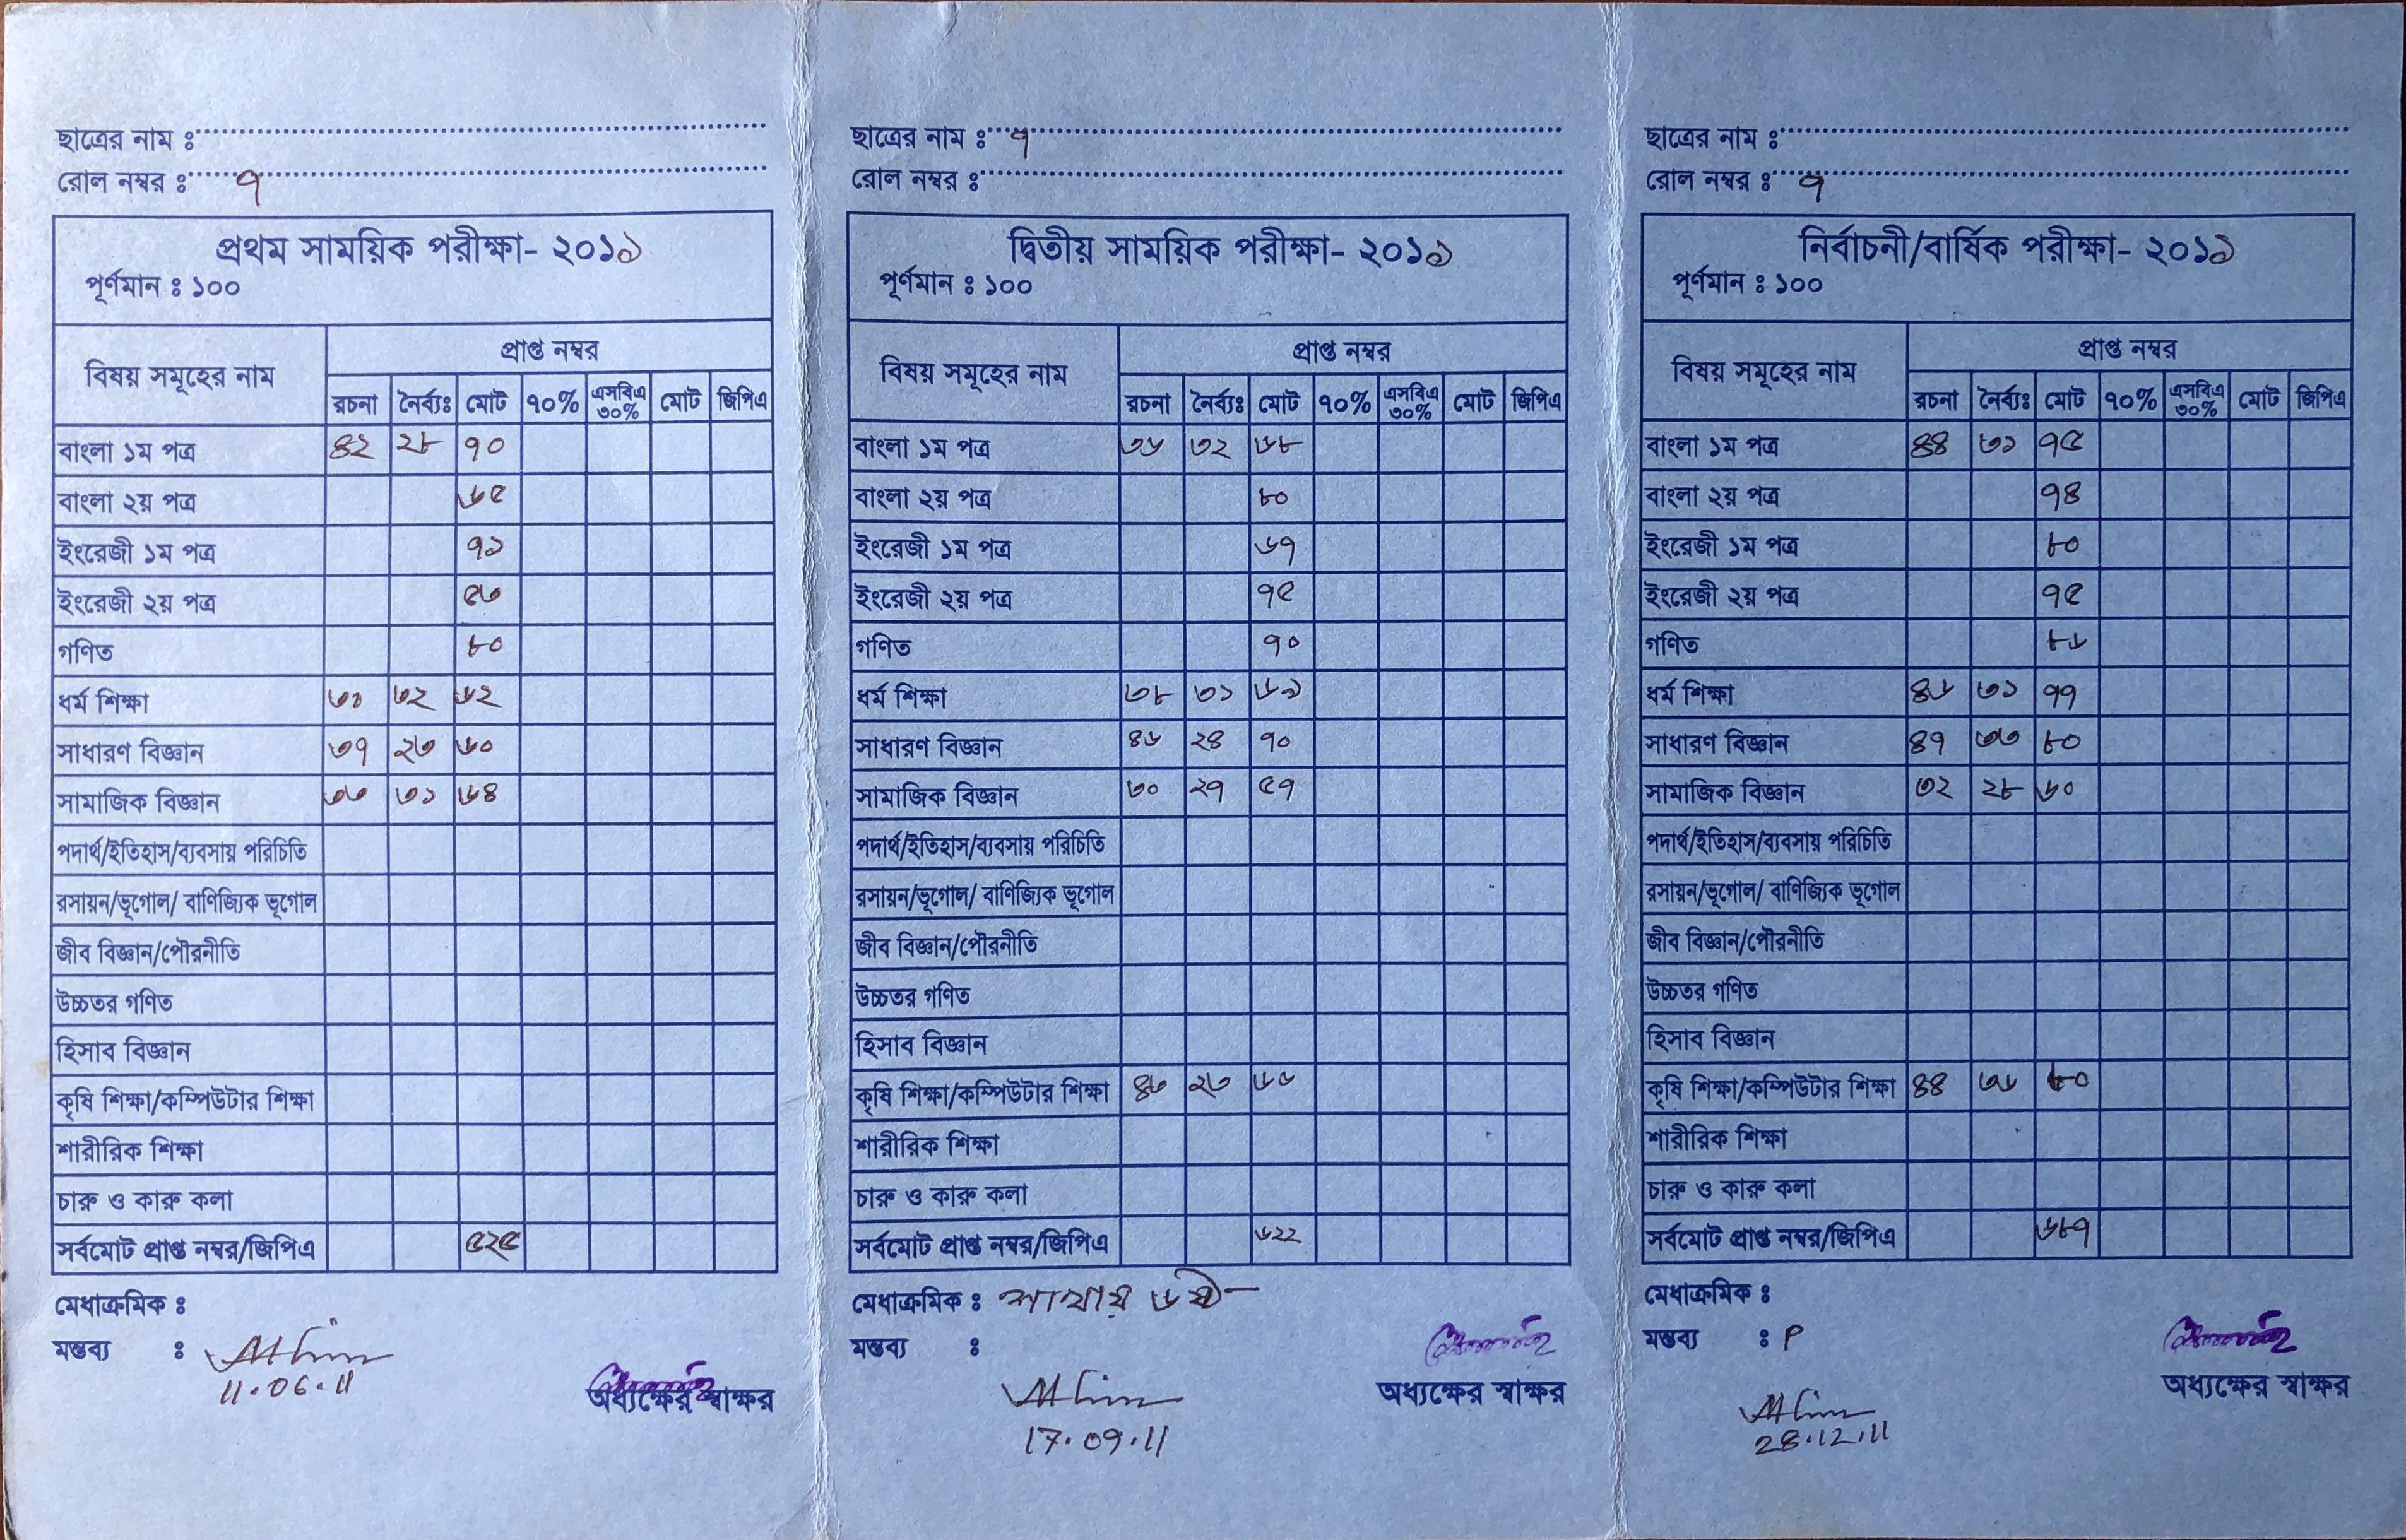 ছাত্রের নাম ঃ
রোল নম্বর ঃ ৭
প্রথম সাময়িক পরীক্ষা- ২০১১
পূর্ণমান ঃ ১০০
বিষয় সমূহের নাম প্রাপ্ত নম্বর
রচনা নৈর্ব্যঃ মোট ৭০% এসবিএ ৩০% মোট জিপিএ
বাংলা ১ম পত্র ৪২ ২৮ ৭০
বাংলা ২য় পত্র ৬৫
ইংরেজী ১ম পত্র ৭১
ইংরেজী ২য় পত্র ৫৩
গণিত ৮০
ধর্ম শিক্ষা ৩০ ৩২ ৬২
সাধারণ বিজ্ঞান ৩৭ ২৩ ৬০
সামাজিক বিজ্ঞান ৩৩ ৩১ ৬৪
পদার্থ/ইতিহাস/ব্যবসায় পরিচিতি
রসায়ন/ভূগোল/ বাণিজ্যিক ভূগোল
জীব বিজ্ঞান/পৌরনীতি
উচ্চতর গণিত
হিসাব বিজ্ঞান
কৃষি শিক্ষা/কম্পিউটার শিক্ষা
শারীরিক শিক্ষা
চারু ও কারু কলা
সর্বমোট প্রাপ্ত নম্বর/জিপিএ ৫২৫
মেধাক্রমিক ঃ
মন্তব্য ঃ
11.06.11
অধ্যক্ষের স্বাক্ষর
ছাত্রের নাম ঃ ৭
রোল নম্বর ঃ
দ্বিতীয় সাময়িক পরীক্ষা- ২০১১
পূর্ণমান ঃ ১০০
বিষয় সমূহের নাম প্রাপ্ত নম্বর
রচনা নৈর্ব্যঃ মোট ৭০% এসবিএ ৩০% মোট জিপিএ
বাংলা ১ম পত্র ৩৬ ৩২ ৬৮
বাংলা ২য় পত্র ৮০
ইংরেজী ১ম পত্র ৬৭
ইংরেজী ২য় পত্র ৭৫
গণিত ৭০
ধর্ম শিক্ষা ৩৮ ৩১ ৬৯
সাধারণ বিজ্ঞান ৪৬ ২৪ ৭০
সামাজিক বিজ্ঞান ৩০ ২৭ ৫৭
পদার্থ/ইতিহাস/ব্যবসায় পরিচিতি
রসায়ন/ভূগোল/ বাণিজ্যিক ভূগোল
জীব বিজ্ঞান/পৌরনীতি
উচ্চতর গণিত
হিসাব বিজ্ঞান
কৃষি শিক্ষা/কম্পিউটার শিক্ষা ৪৩ ২৩ ৬৬
শারীরিক শিক্ষা
চারু ও কারু কলা
সর্বমোট প্রাপ্ত নম্বর/জিপিএ ৬২২
মেধাক্রমিক ঃ শাখায় ৬ষ্ঠ
মন্তব্য ঃ
17.09.11
অধ্যক্ষের স্বাক্ষর
ছাত্রের নাম ঃ
রোল নম্বর ঃ ৭
নির্বাচনী/বার্ষিক পরীক্ষা- ২০১১
পূর্ণমান ঃ ১০০
বিষয় সমূহের নাম প্রাপ্ত নম্বর
রচনা নৈর্ব্যঃ মোট ৭০% এসবিএ ৩০% মোট জিপিএ
বাংলা ১ম পত্র ৪৪ ৩১ ৭৫
বাংলা ২য় পত্র ৭৪
ইংরেজী ১ম পত্র ৮০
ইংরেজী ২য় পত্র ৭৫
গণিত ৮৬
ধর্ম শিক্ষা ৪৬ ৩১ ৭৭
সাধারণ বিজ্ঞান ৪৭ ৩৩ ৮০
সামাজিক বিজ্ঞান ৩২ ২৮ ৬০
পদার্থ/ইতিহাস/ব্যবসায় পরিচিতি
রসায়ন/ভূগোল/ বাণিজ্যিক ভূগোল
জীব বিজ্ঞান/পৌরনীতি
উচ্চতর গণিত
হিসাব বিজ্ঞান
কৃষি শিক্ষা/কম্পিউটার শিক্ষা ৪৪ ৩৬ ৮০
শারীরিক শিক্ষা
চারু ও কারু কলা
সর্বমোট প্রাপ্ত নম্বর/জিপিএ ৬৮৭
মেধাক্রমিক ঃ
মন্তব্য ঃ P
28.12.11
অধ্যক্ষের স্বাক্ষর